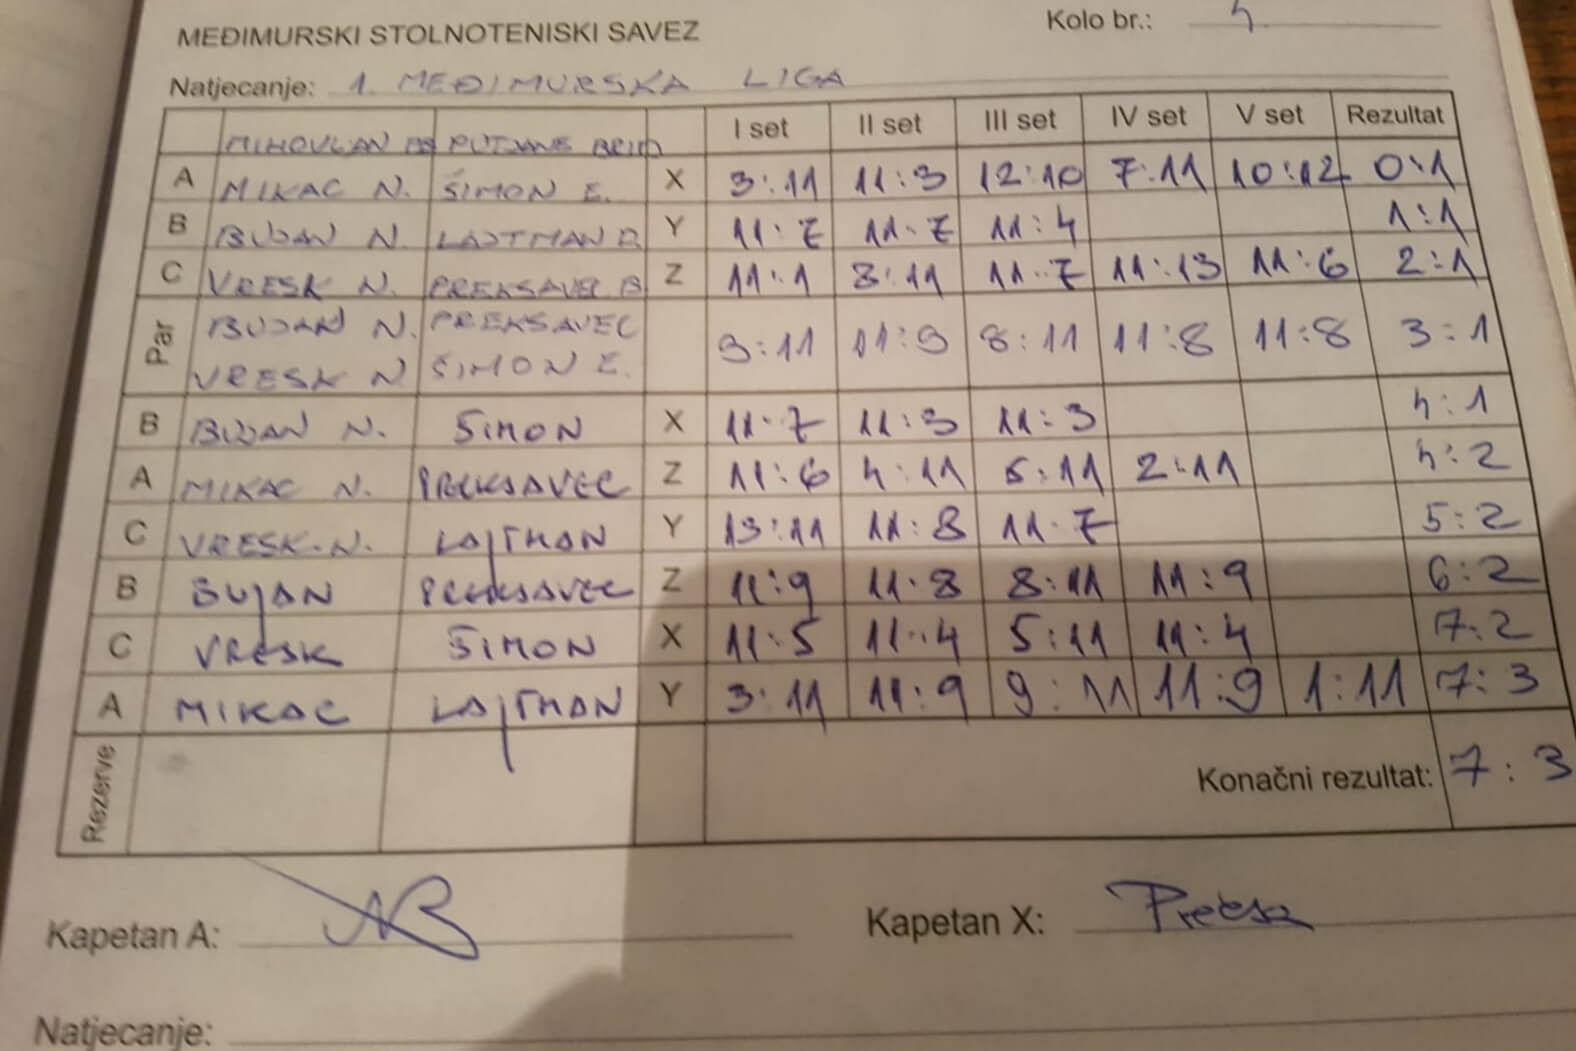 MEĐIMURSKI STOLNOTENISKI SAVEZ Kolo br.: 4.
Natjecanje: 1. MEĐIMURSKA LIGA
MIHOVLJAN PUTJANE I set II set III set IV set V set Rezultat
A MIKAC N. ŠIMON E. X 3:11 11:3 12:10 7:11 10:12 0:1
B BUJAN N. LAJTMAN D. Y 11:7 11:7 11:4 1:1
C VRESK N. PREKSAVEC B. Z 11:1 8:11 11:7 11:13 11:6 2:1
Par BUJAN N. PREKSAVEC 9:11 11:9 8:11 11:8 11:8 3:1
VRESK N. ŠIMON E.
B BUJAN N. ŠIMON X 11:7 11:3 11:3 4:1
A MIKAC N. PREKSAVEC Z 11:6 4:11 5:11 2:11 4:2
C VRESK.N. LAJTMAN Y 13:11 11:8 11:7 5:2
B BUJAN PREKSAVEC Z 11:9 11:8 8:11 11:9 6:2
C VRESK ŠIMON X 11:5 11:4 5:11 11:4 7:2
A MIKAC LAJTMAN Y 3:11 11:9 9:11 11:9 1:11 7:3
Rezerve Konačni rezultat: 7:3
Kapetan A: Kapetan X:
Natjecanje: